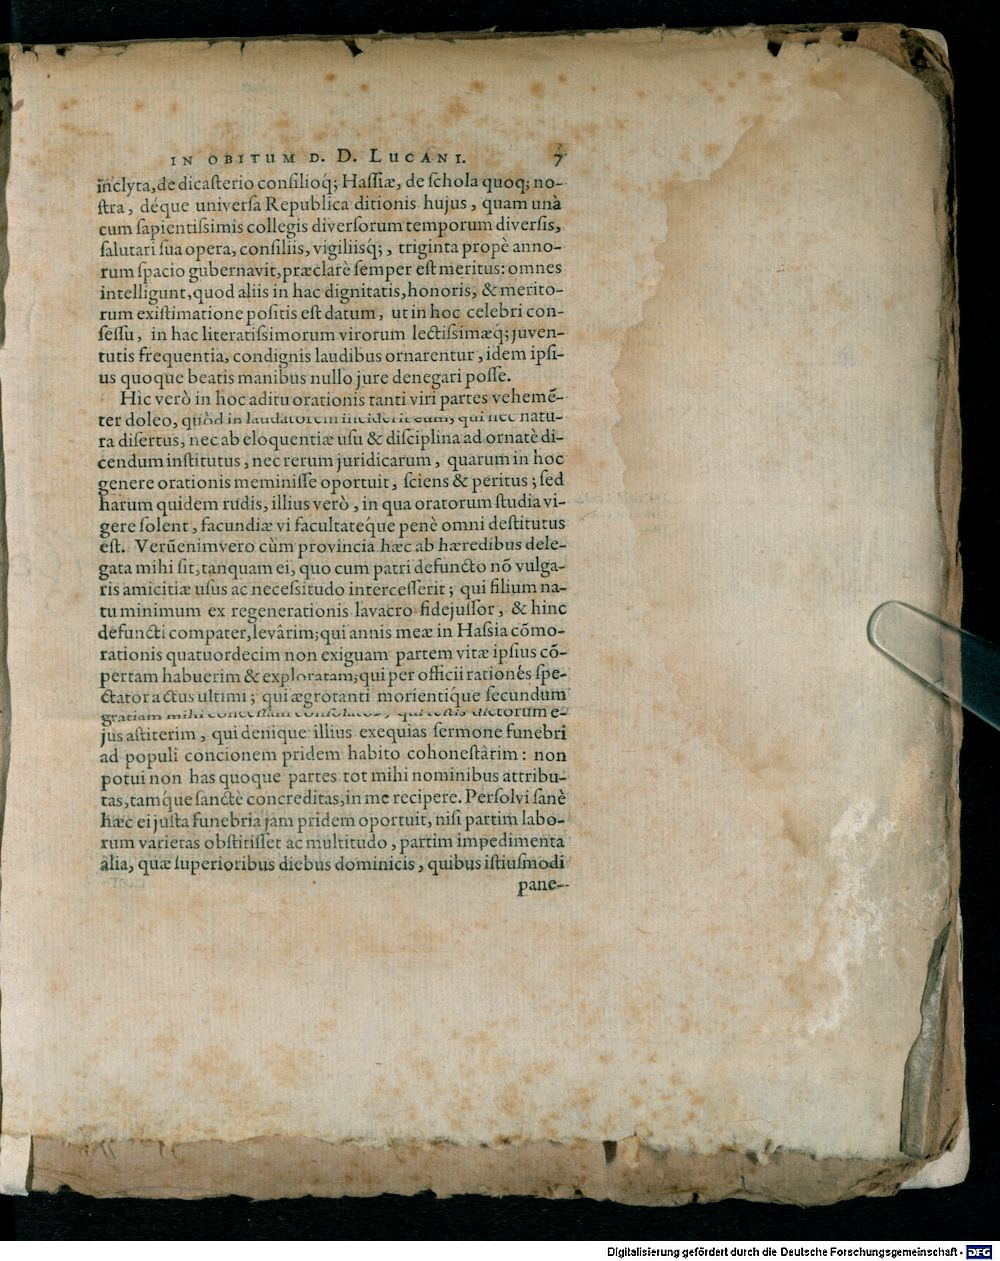 IN OBITUM D. D. LUCANI. 7
inclyta, de dicasterio consilioq́; Hassiæ, de schola quoq; no-
stra, déque universa Republica ditionis hujus, quam unà
cum sapientissimis collegis diversorum temporum diversis,
salutari sua opera, consiliis, vigiliisq́;, triginta propè anno-
rum spacio gubernavit, præclarè semper est meritus: omnes
intelligunt, quod aliis in hac dignitatis, honoris, & merito-
rum existimatione positis est datum, ut in hoc celebri con-
sessu, in hac literatissimorum virorum lectissimæq́; juven-
tutis frequentia, condignis laudibus ornarentur, idem ipsi-
us quoque beatis manibus nullo jure denegari posse.
Hic verò in hoc aditu orationis tanti viri partes vehemẽ-
ter doleo, quòd in laudatorem inciderit eum, qui nec natu-
ra disertus, nec ab eloquentiæ usu & disciplina ad ornatè di-
cendum institutus, nec rerum juridicarum, quarum in hoc
genere orationis meminisse oportuit, sciens & peritus; sed
harum quidem rudis, illius verò, in qua oratorum studia vi-
gere solent, facundiæ vi facultatéque penè omni destitutus
est. Verũenimvero cùm provincia hæc ab hæredibus dele-
gata mihi sit, tanquam ei, quo cum patri defuncto nõ vulga-
ris amicitiæ usus ac necessitudo intercesserit; qui filium na-
tu minimum ex regenerationis lavacro fidejussor, & hinc
defuncti compater, levârim; qui annis meæ in Hassia cõmo-
rationis quatuordecim non exiguam partem vitæ ipsius cõ-
pertam habuerim & exploratam; qui per officii rationes spe-
ctator actus ultimi; qui ægrotanti morientíque secundum
gratiam mihi concessam consolator, qui testis dictorum e-
jus astiterim, qui denique illius exequias sermone funebri
ad populi concionem pridem habito cohonestârim: non
potui non has quoque partes tot mihi nominibus attribu-
tas, tamq́ue sanctè concreditas, in me recipere. Persolvi sanè
hæc ei justa funebria jam pridem oportuit, nisi partim labo-
rum varietas obstitisset ac multitudo, partim impedimenta
alia, quæ superioribus diebus dominicis, quibus istiusmodi
pane-
Digitalisierung gefördert durch die Deutsche Forschungsgemeinschaft - DFG